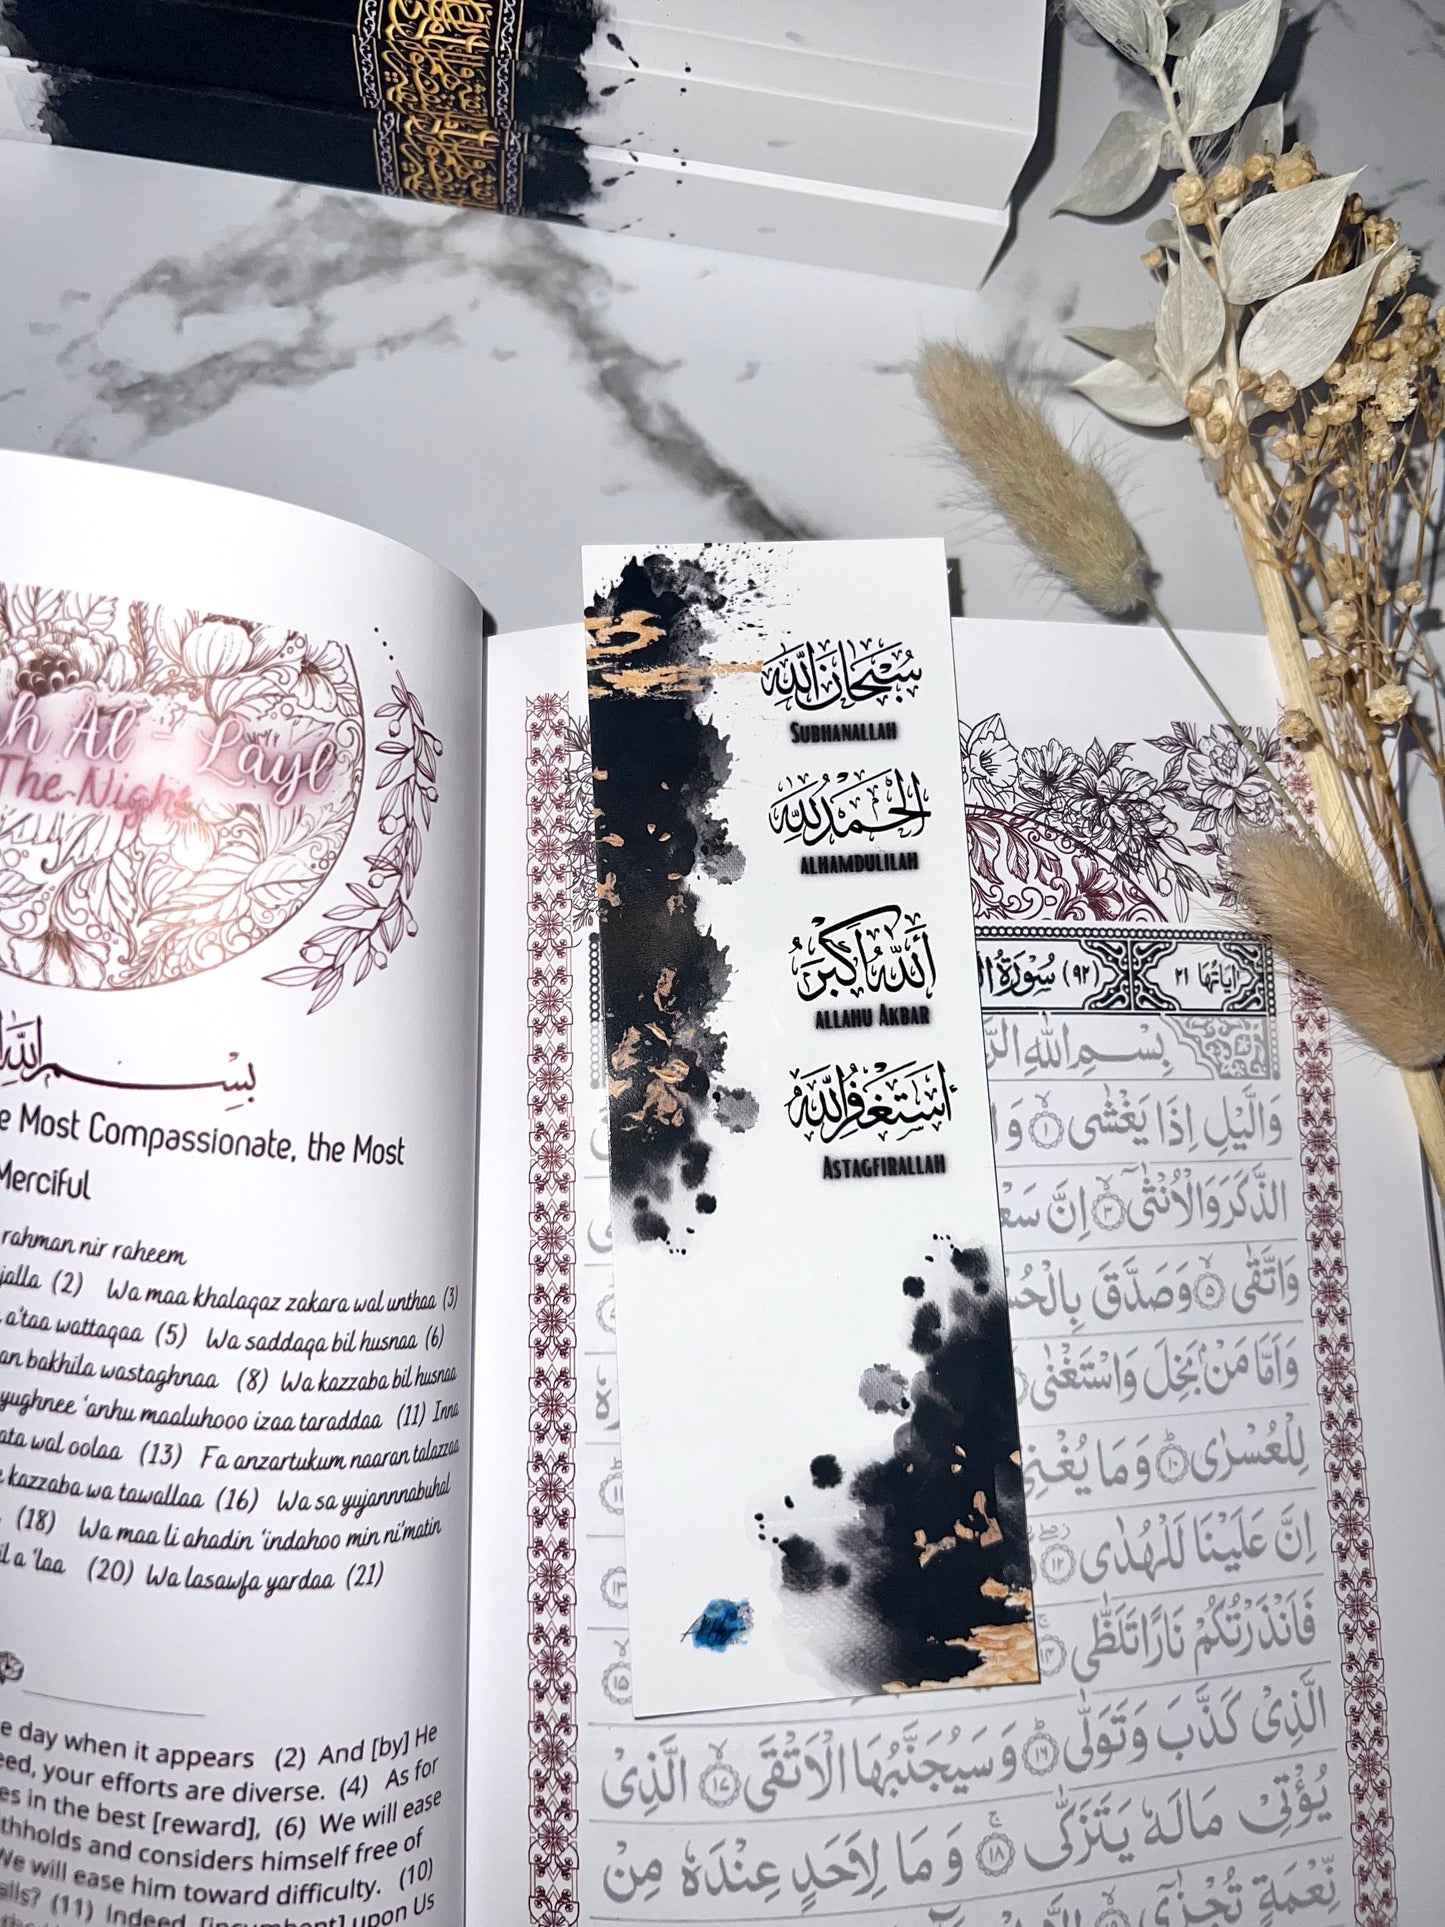 ah Al - Layl
The Night
بِسْمِ اللّٰهِ
e Most Compassionate, the Most
Merciful
rahman nir raheem
jalla (2) Wa maa khalaqaz zakara wal unthaa (3)
a'taa wattaqaa (5) Wa saddaqa bil husnaa (6)
an bakhila wastaghnaa (8) Wa kazzaba bil husnaa
yughnee 'anhu maaluhooo izaa taraddaa (11) Inna
ata wal oolaa (13) Fa anzartukum naaran talazzaa
kazzaba wa tawallaa (16) Wa sa yujannnabuhal
(18) Wa maa li ahadin 'indahoo min ni'matin
il a 'laa (20) Wa lasawfa yardaa (21)
e day when it appears (2) And [by] He
eed, your efforts are diverse. (4) As for
es in the best [reward], (6) We will ease
ithholds and considers himself free of
We will ease him toward difficulty. (10)
alls? (11) Indeed, [incumbent] upon Us
سُبْحَانَ اللّٰه
Subhanallah
الْحَمْدُ لِلّٰه
alhamdulilah
اللّٰهُ أَكْبَر
allahu Akbar
أَسْتَغْفِرُ اللّٰه
Astagfirallah
اٰيَاتُهَا ٢١ (٩٢) سُوْرَةُ
بِسْمِ اللّٰهِ
وَالَّيْلِ اِذَا يَغْشٰى ١
الذَّكَرَ وَالْاُنْثٰٓى ٣ اِنَّ
وَاتَّقٰى ٥ وَصَدَّقَ
وَاَمَّا مَنْۢ بَخِلَ وَاسْتَغْنٰى
لِلْعُسْرٰى ١٠ وَمَا يُغْنِيْ
اِنَّ عَلَيْنَا لَلْهُدٰى ١٢
فَاَنْذَرْتُكُمْ نَارًا تَلَظّٰى ١٤
الَّذِيْ كَذَّبَ وَتَوَلّٰى ١٦ وَسَيُجَنَّبُهَا الْاَتْقَى ١٧ الَّذِيْ
يُؤْتِيْ مَالَهٗ يَتَزَكّٰى ١٨ وَمَا لِاَحَدٍ عِنْدَهٗ مِنْ
نِّعْمَةٍ تُجْزٰٓى ١٩